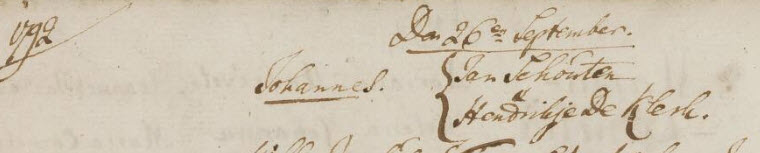 1792
Den 26en September.
Johannes. Jan Schouten
Hendrikje De Klerk.